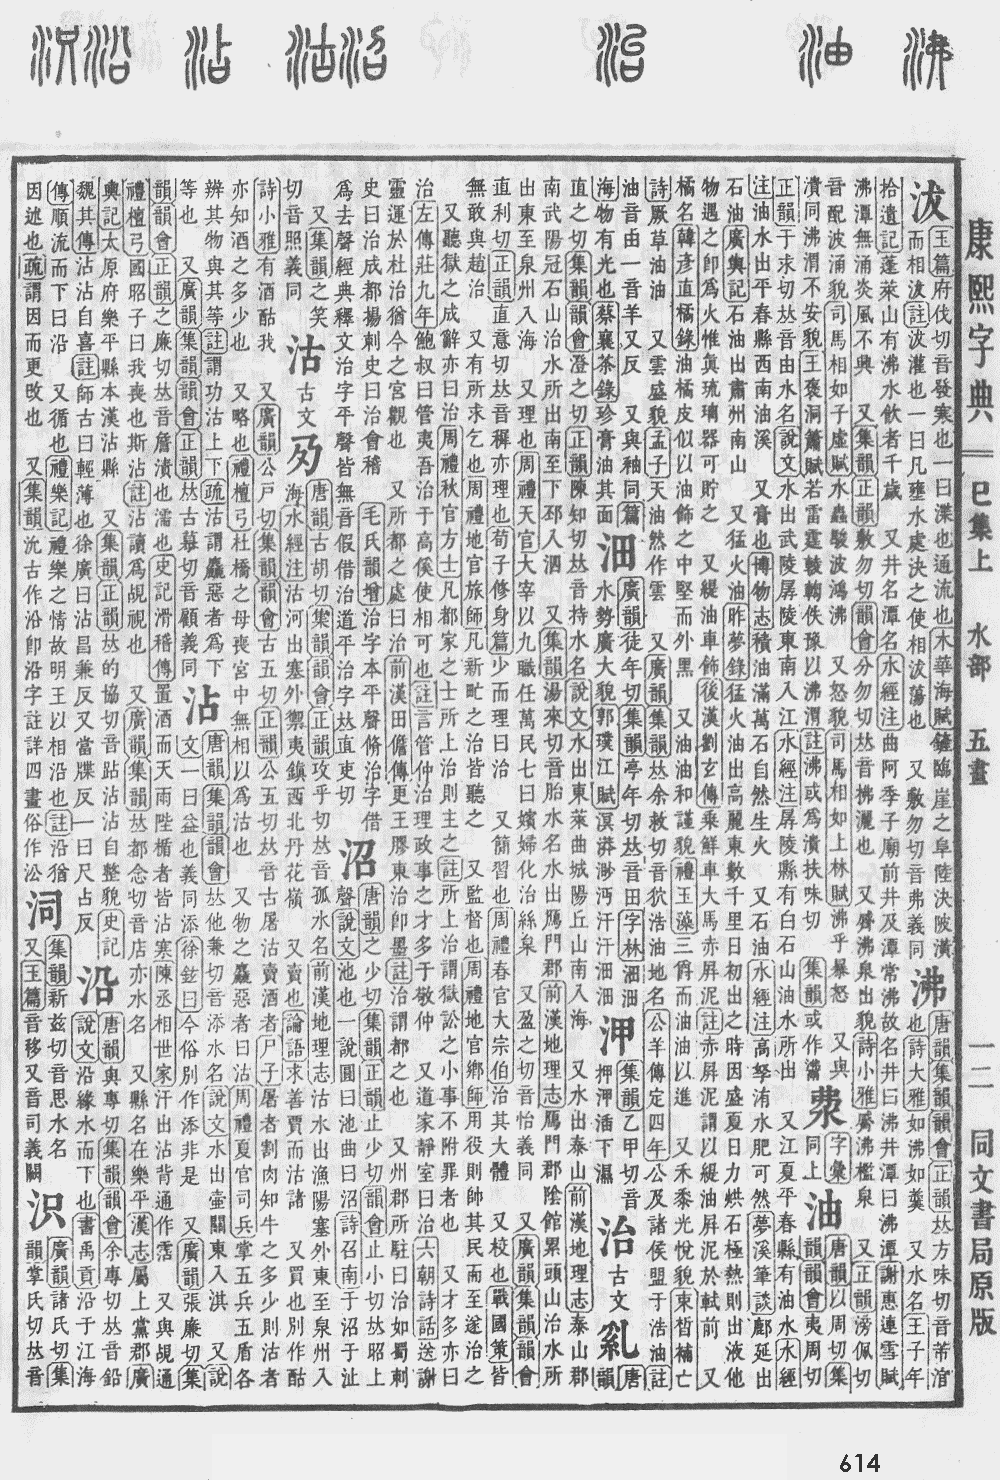 康熙字典
巳集上 水部 五畫
一二
同文書局原版
玉篇府伐切音發寒也一曰渫也通流也木華海賦鏟臨崖之阜陸決陂潢
而相沷註沷灌也一曰凡壅水處決之使相沷蕩也 又敷勿切音弗義同
沸
唐韻集韻韻會正韻𠀤方味切音芾涫
也詩大雅如沸如羹 又水名王子年
拾遺記蓬萊山有沸水飲者千歲 又井名潭名水經注曲阿季子廟前井及潭常沸故名井曰沸井潭曰沸潭謝惠連雪賦
沸潭無涌炎風不興 又集韻正韻敷勿切韻會分勿切𠀤音拂灑也 又觱沸泉出貌詩小雅觱沸檻泉 又正韻滂佩切
音配波涌貌司馬相如子虛賦水蟲駭波鴻沸 又怒貌司馬相如上林賦沸乎暴怒 又與
濆同沸渭不安貌王褒洞簫賦若雷霆輘輷佚豫以沸渭註沸或爲濆扶味切 集韻或作灊
字彙
同上
油
唐韻以周切集
韻韻會夷周切
正韻于求切𠀤音由水名說文水出武陵孱陵東南入江水經注孱陵縣有白石山油水所出 又江夏平春縣有油水水經
注油水出平春縣西南油溪 又膏也博物志積油滿萬石自然生火 又石油水經注高奴洧水肥可然夢溪筆談鄜延出
石油廣輿記石油出肅州南山 又猛火油昨夢錄猛火油出高麗東數千里日初出之時因盛夏日力烘石極熱則出液他
物遇之卽爲火惟眞琉璃器可貯之 又緹油車飾後漢劉玄傳乘鮮車大馬赤屛泥註赤屛泥謂以緹油屛泥於軾前 又
橘名韓彥直橘錄油橘皮似以油飾之中堅而外黑 又油油和謹貌禮玉藻三爵而油油以進 又禾黍光悅貌束皙補亡
詩厥草油油 又雲盛貌孟子天油然作雲 又廣韻集韻𠀤余救切音狖浩油地名公羊傳定四年公及諸侯盟于浩油註
油音由一音羊又反 又與釉同篇
海物有光也蔡襄茶錄珍膏油其面
沺
廣韻徒年切集韻亭年切𠀤音田字林沺沺
水勢廣大貌郭璞江賦溟漭渺沔汗汗沺沺
泙
集韻乙甲切音
押泙湁下濕
治
古文
乿
唐
韻
直之切集韻韻會澄之切正韻陳知切𠀤音持水名說文水出東萊曲城陽丘山南入海 又水出泰山前漢地理志泰山郡
南武陽冠石山治水所出南至下邳入泗 又集韻湯來切音胎水名水出鴈門郡前漢地理志鴈門郡陰館累頭山治水所
出東至泉州入海 又理也周禮天官大宰以九職任萬民七曰嬪婦化治絲枲 又盈之切音怡義同 又廣韻集韻韻會
直利切正韻直意切𠀤音穉亦理也荀子修身篇少而理曰治 又簡習也周禮春官大宗伯治其大體 又校也戰國策皆
無敢與趙治 又有所求乞也周禮地官旅師凡新甿之治皆聽之 又監督也周禮地官鄕師用役則帥其民而至遂治之
又聽獄之成辭亦曰治周禮秋官方士凡都家之士所上治則主之註所上治謂獄訟之小事不附罪者也 又才多亦曰
治左傳莊九年鮑叔曰管夷吾治于高傒使相可也註言管仲治理政事之才多于敬仲 又道家靜室曰治六朝詩話送謝
靈運於杜治猶今之宮觀也 又所都之處曰治前漢田儋傳更王膠東治卽墨註治謂都之也 又州郡所駐曰治如蜀刺
史曰治成都揚刺史曰治會稽 毛氏韻增治字本平聲脩治字借
爲去聲經典釋文治字平聲皆無音假借治道平治字𠀤直吏切
沼
唐韻之少切集韻正韻止少切韻會止小切𠀤昭上
聲說文池也一說圓曰池曲曰沼詩召南于沼于沚
又集韻之笑
切音照義同
沽
古文
夃
唐韻古胡切集韻韻會正韻攻乎切𠀤音孤水名前漢地理志沽水出漁陽塞外東至泉州入
海水經注沽河出塞外禦夷鎮西北丹花嶺 又賣也論語求善賈而沽諸 又買也別作酤
詩小雅有酒酤我 又廣韻公戸切集韻韻會古五切正韻公五切𠀤音古屠沽賣酒者尸子屠者割肉知牛之多少則沽者
亦知酒之多少也 又略也禮檀弓杜橋之母喪宮中無相以爲沽也 又物之麤惡者曰沽周禮夏官司兵掌五兵五盾各
辨其物與其等註謂功沽上下疏沽謂麤惡者爲下
等也 又廣韻集韻韻會正韻𠀤古慕切音顧義同
沾
唐韻集韻韻會𠀤他兼切音添水名說文水出壷關東入淇 又說
文一曰益也義同添徐鉉曰今俗別作添非是 又廣韻張廉切集
韻韻會正韻之廉切𠀤音詹漬也濡也史記滑稽傳置酒而天雨陛楯者皆沾寒陳丞相世家汗出沾背通作霑 又與覘通
禮檀弓國昭子曰我喪也斯沾註沾讀爲覘視也 又廣韻集韻𠀤都念切音店亦水名 又縣名在樂平漢志屬上黨郡廣
輿記太原府樂平縣本漢沾縣 又集韻正韻𠀤的協切音跕沾自整貌史記
魏其傳沾沾自喜註師古曰輕薄也徐廣曰沾昌兼反又當牒反一曰尺占反
沿
唐韻與專切集韻韻會余專切𠀤音鉛
說文沿緣水而下也書禹貢沿于江海
傳順流而下曰沿 又循也禮樂記禮樂之情故明王以相沿也註沿猶
因述也疏謂因而更攺也 又集韻沇古作沿卽沿字註詳四畫俗作㳂
泀
集韻新兹切音思水名
又玉篇音移又音司義闕
汦
廣韻諸氏切集
韻掌氏切𠀤音
614